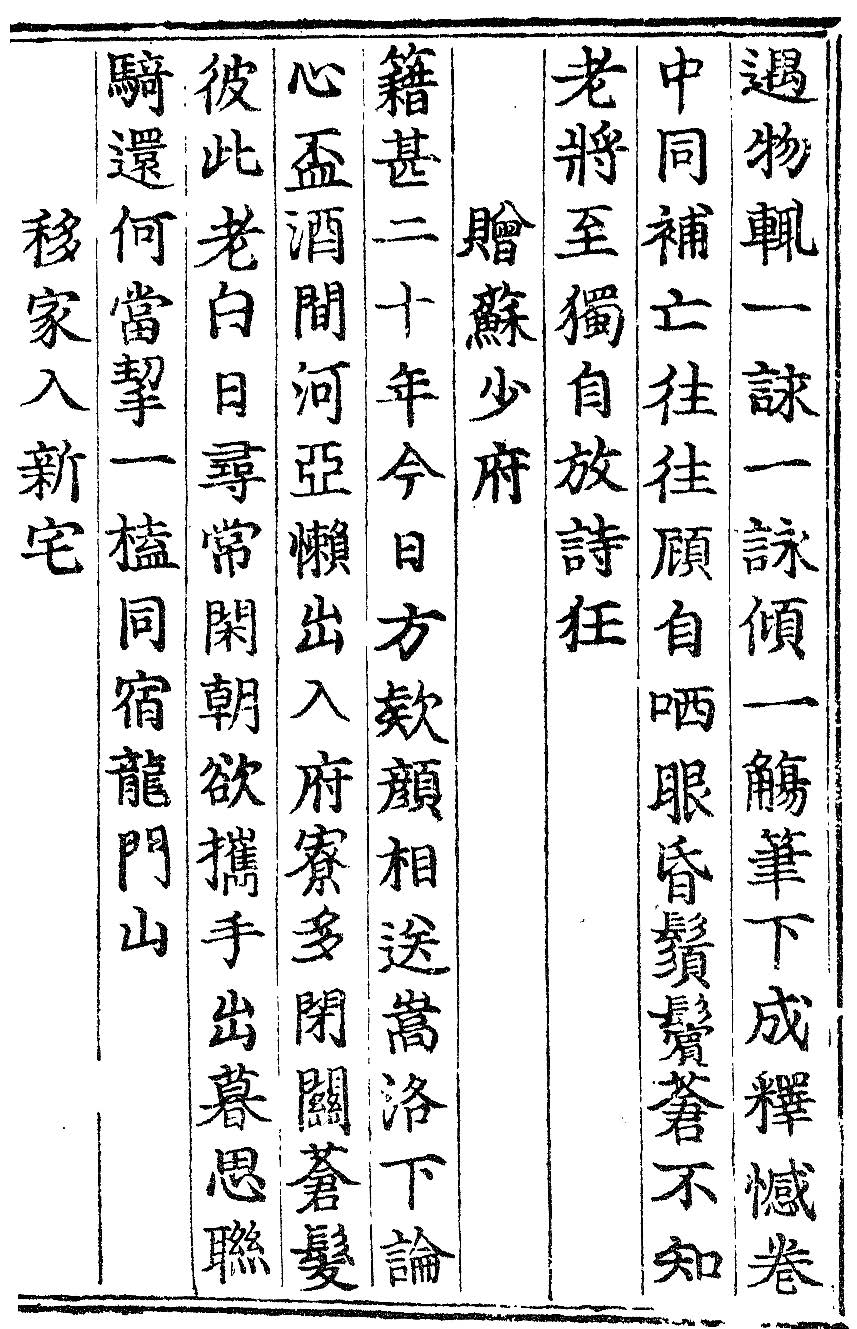 遇物輒一詠一詠傾一觴筆下成釋憾卷
中同補亡往往顧自哂眼昏鬚鬢蒼不知
老將至獨自放詩狂
贈蘇少府
籍甚二十年今日方欵顔相送嵩洛下論
心盃酒間河亞懶出入府寮多閉關蒼髮
彼此老白日尋常閑朝欲攜手出暮思聯
騎還何當挈一榼同宿龍門山
移家入新宅